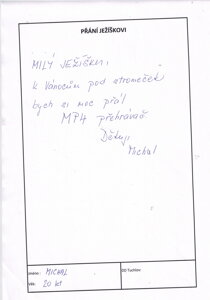 PŘÁNÍ JEŽÍŠKOVI
MILÝ JEŽÍŠKU,
k Vánocům pod stromeček
bych si moc přál
MP4 přehrávač
Děkuji
Michal
Jméno: MICHAL
Věk: 20 let
DD Tuchlov